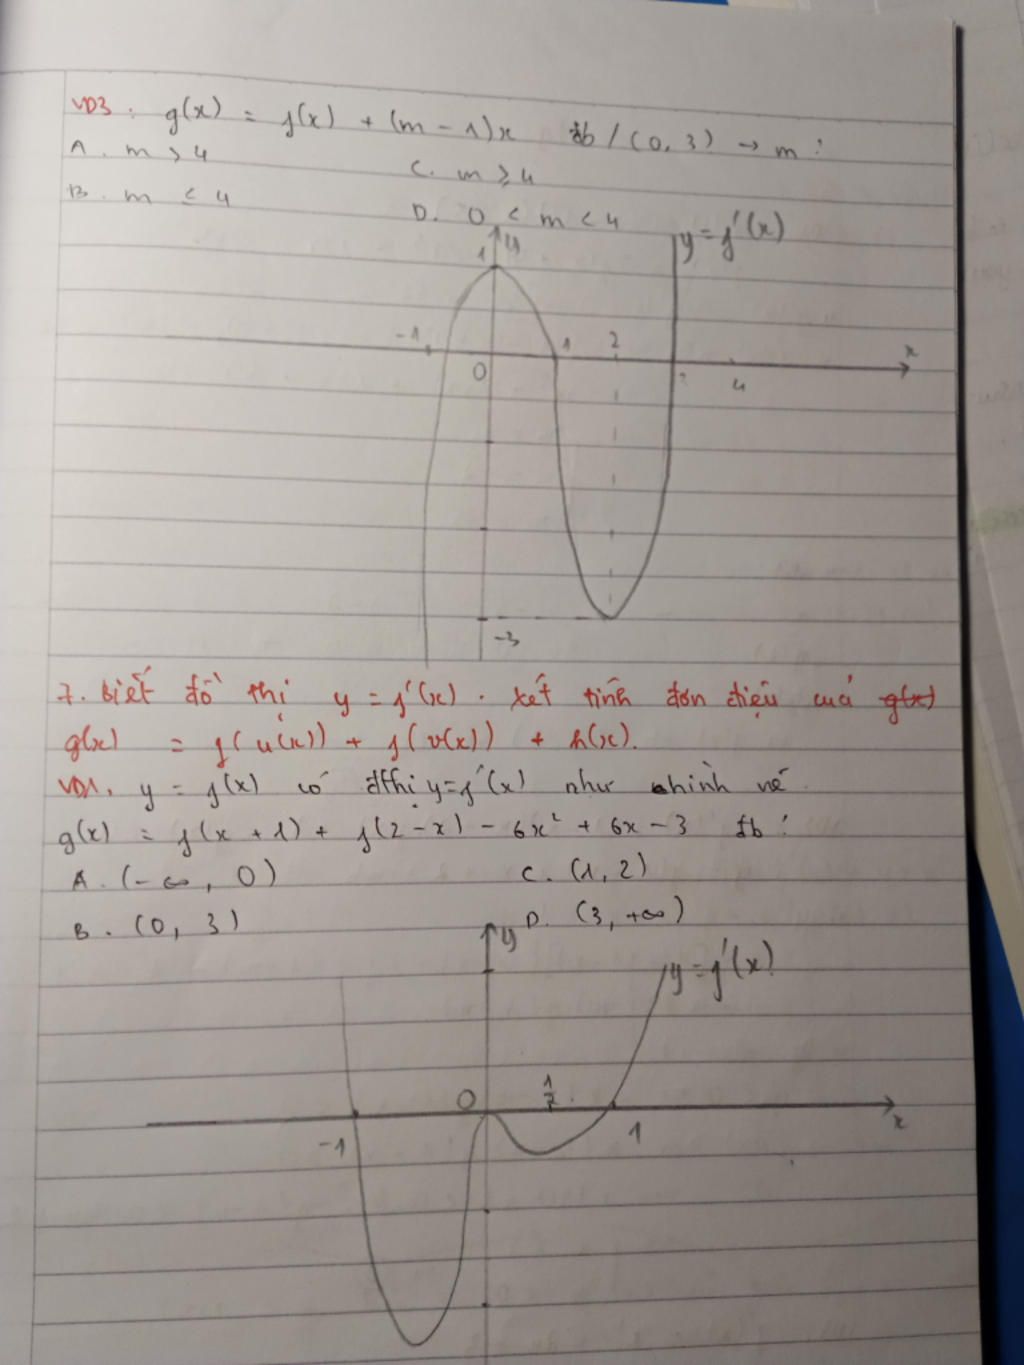 VD3. g(x) = f(x) + (m - 1)x đb / (0, 3) → m?
A. m > 4
C. m ≥ 4
B. m ≤ 4
D. 0 < m < 4
y y = f'(x)
1
-1 1 2 x
0 4
-3
7. Biết đồ thị y = f'(x). Xét tính đơn điệu của g(x)
g(x) = f(u(x)) + f(v(x)) + h(x).
VD1. y = f(x) có đthị y = f'(x) như hình vẽ.
g(x) = f(x + 1) + f(2 - x) - 6x² + 6x - 3 đb?
A. (-∞, 0) C. (1, 2)
B. (0, 3) D. (3, +∞)
y
y = f'(x)
0
-1 1 x